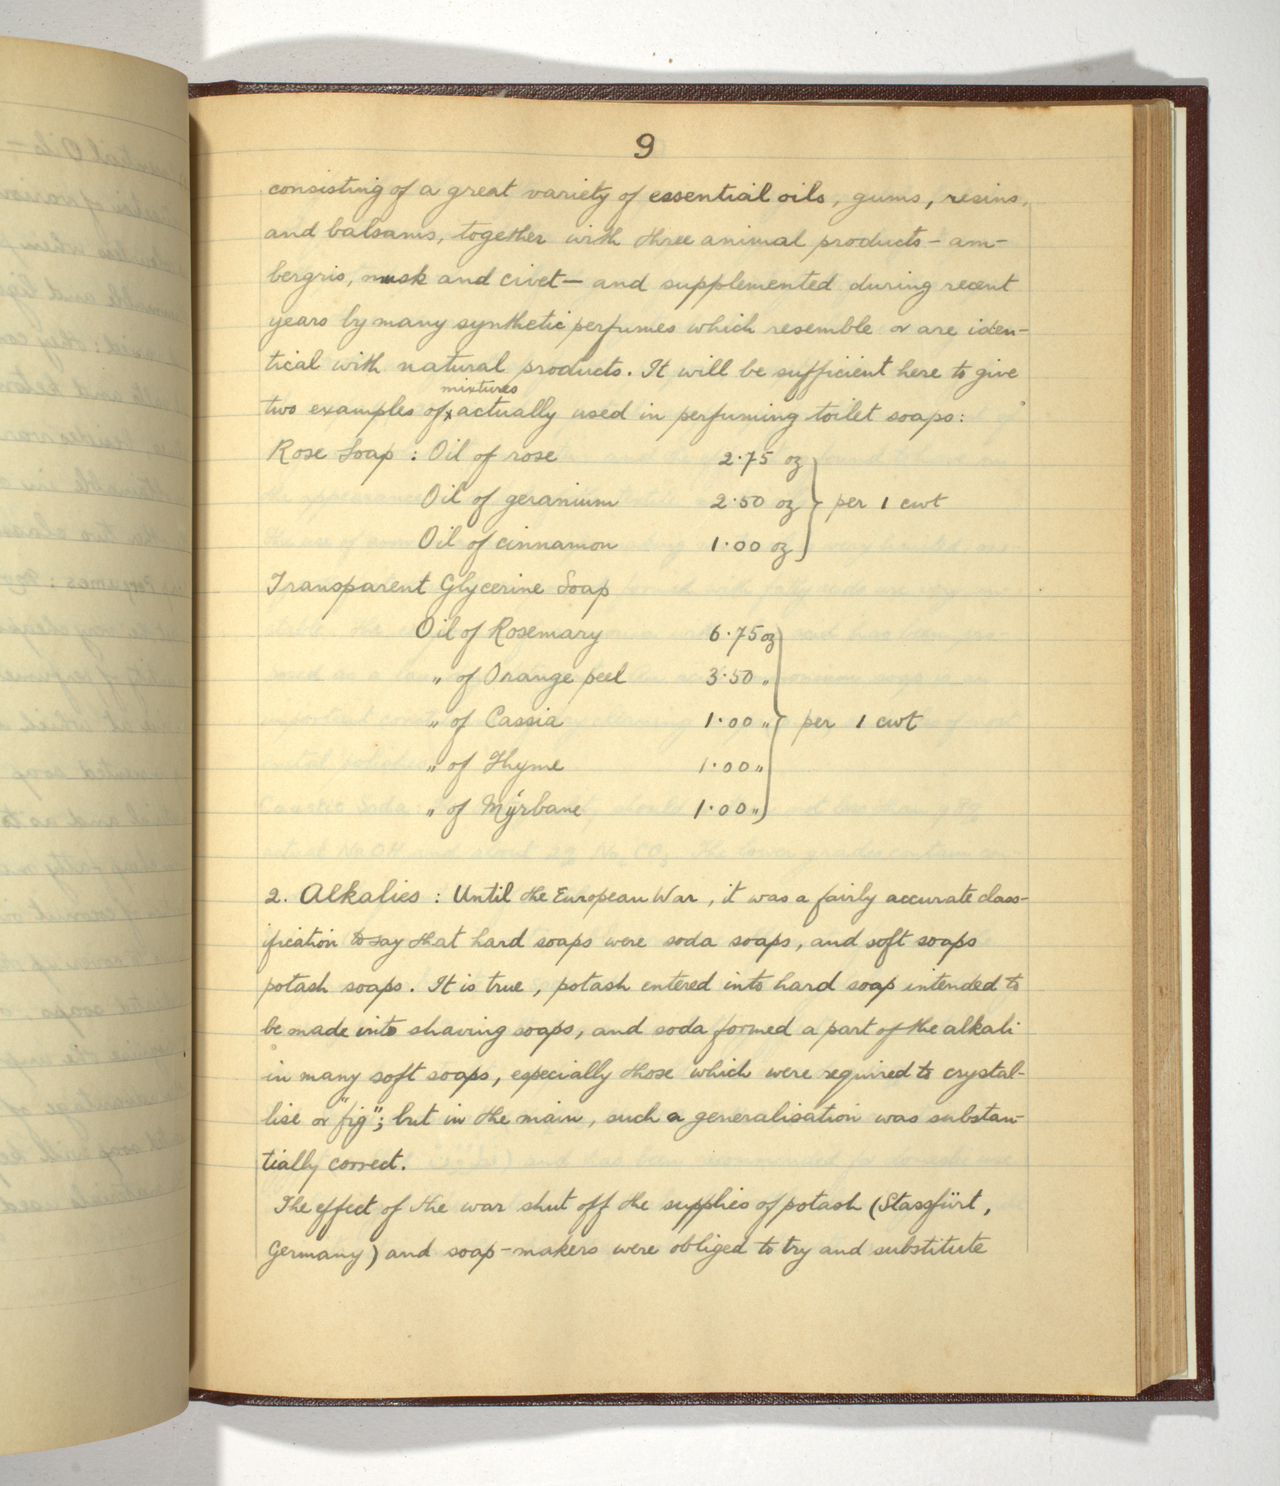 9
consisting of a great variety of essential oils, gums, resins,
and balsams, together with three animal products – am-
bergris, musk and civet – and supplemented during recent
years by many synthetic perfumes which resemble or are iden-
tical with natural products. It will be sufficient here to give
mixtures
two examples of actually used in perfuming toilet soaps:
Rose Soap : Oil of rose 2·75 oz
Oil of geranium 2·50 oz } per 1 cwt
Oil of cinnamon 1·00 oz
Transparent Glycerine Soap
Oil of Rosemary 6·75 oz
„ of Orange peel 3·50 „
„ of Cassia 1·00 „ } per 1 cwt
„ of Thyme 1·00 „
„ of Myrbane 1·00 „
2. Alkalies : Until the European War, it was a fairly accurate class-
ification to say that hard soaps were soda soaps, and soft soaps
potash soaps. It is true, potash entered into hard soap intended to
be made into shaving soaps, and soda formed a part of the alkali
in many soft soaps, especially those which were required to crystal-
lise or "fig"; but in the main, such a generalisation was substan-
tially correct.
The effect of the war shut off the supplies of potash (Stassfürt,
Germany) and soap-makers were obliged to try and substitute